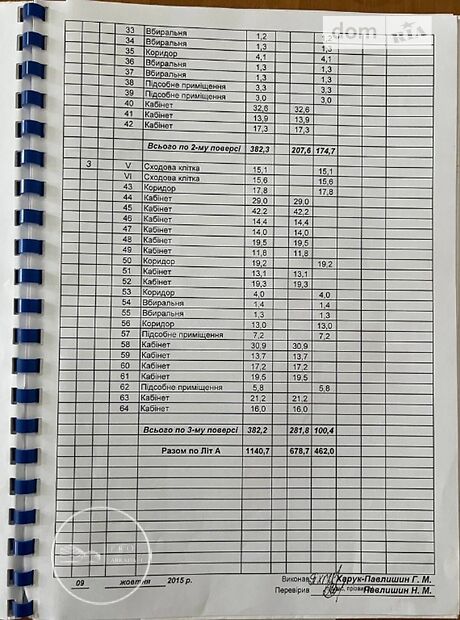 dom
33 Вбиральня 1,2 1,2
34 Вбиральня 1,3 1,3
35 Коридор 4,1 4,1
36 Вбиральня 1,3 1,3
37 Вбиральня 1,3 1,3
38 Підсобне приміщення 3,3 3,3
39 Підсобне приміщення 3,0 3,0
40 Кабінет 32,6 32,6
41 Кабінет 13,9 13,9
42 Кабінет 17,3 17,3
Всього по 2-му поверсі 382,3 207,6 174,7
3 V Сходова клітка 15,1 15,1
VI Сходова клітка 15,6 15,6
43 Коридор 17,8 17,8
44 Кабінет 29,0 29,0
45 Кабінет 42,2 42,2
46 Кабінет 14,4 14,4
47 Кабінет 14,0 14,0
48 Кабінет 19,5 19,5
49 Кабінет 11,8 11,8
50 Коридор 19,2 19,2
51 Кабінет 13,1 13,1
52 Кабінет 19,3 19,3
53 Коридор 4,0 4,0
54 Вбиральня 1,4 1,4
55 Вбиральня 1,3 1,3
56 Коридор 13,0 13,0
57 Підсобне приміщення 7,2 7,2
58 Кабінет 30,9 30,9
59 Кабінет 13,7 13,7
60 Кабінет 17,2 17,2
61 Кабінет 19,5 19,5
62 Підсобне приміщення 5,8 5,8
63 Кабінет 21,2 21,2
64 Кабінет 16,0 16,0
Всього по 3-му поверсі 382,2 281,8 100,4
Разом по Літ А 1140,7 678,7 462,0
09 жовтня 2015 р. Виконав Харук-Павлишин Г. М.
Перевірив Павлишин Н. М.